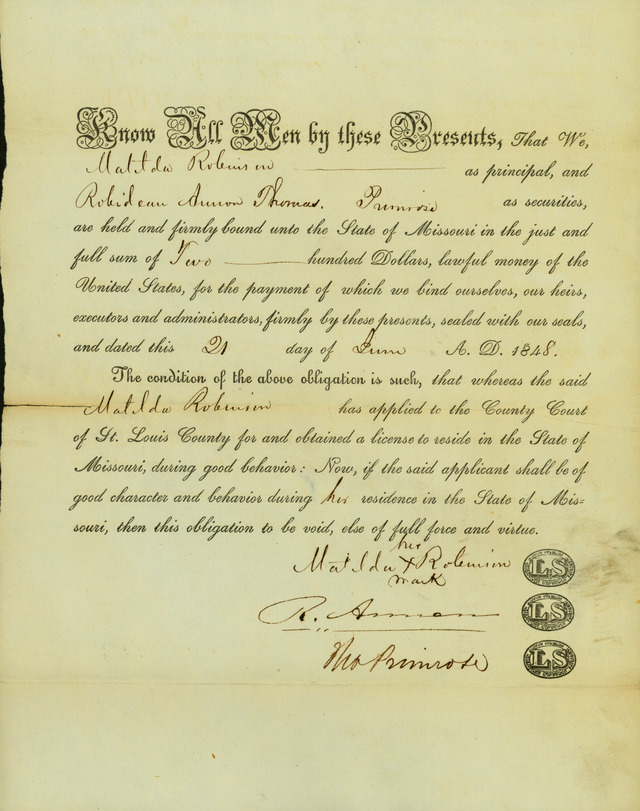 Know All Men by these Presents, That We,
Matilda Robinson as principal, and
Thomas. Primrose as securities,
are held and firmly bound unto the State of Missouri in the just and
full sum of Two hundred Dollars, lawful money of the
United States, for the payment of which we bind ourselves, our heirs,
executors and administrators, firmly by these presents, sealed with our seals,
and dated this 21 day of June A. D. 1848.
The condition of the above obligation is such, that whereas the said
Matilda Robinson has applied to the County Court
of St. Louis County for and obtained a license to reside in the State of
Missouri, during good behavior: Now, if the said applicant shall be of
good character and behavior during her residence in the State of Mis=
souri, then this obligation to be void, else of full force and virtue.
her
Matilda X Robinson LS
mark
R. LS
Tho Primrose LS